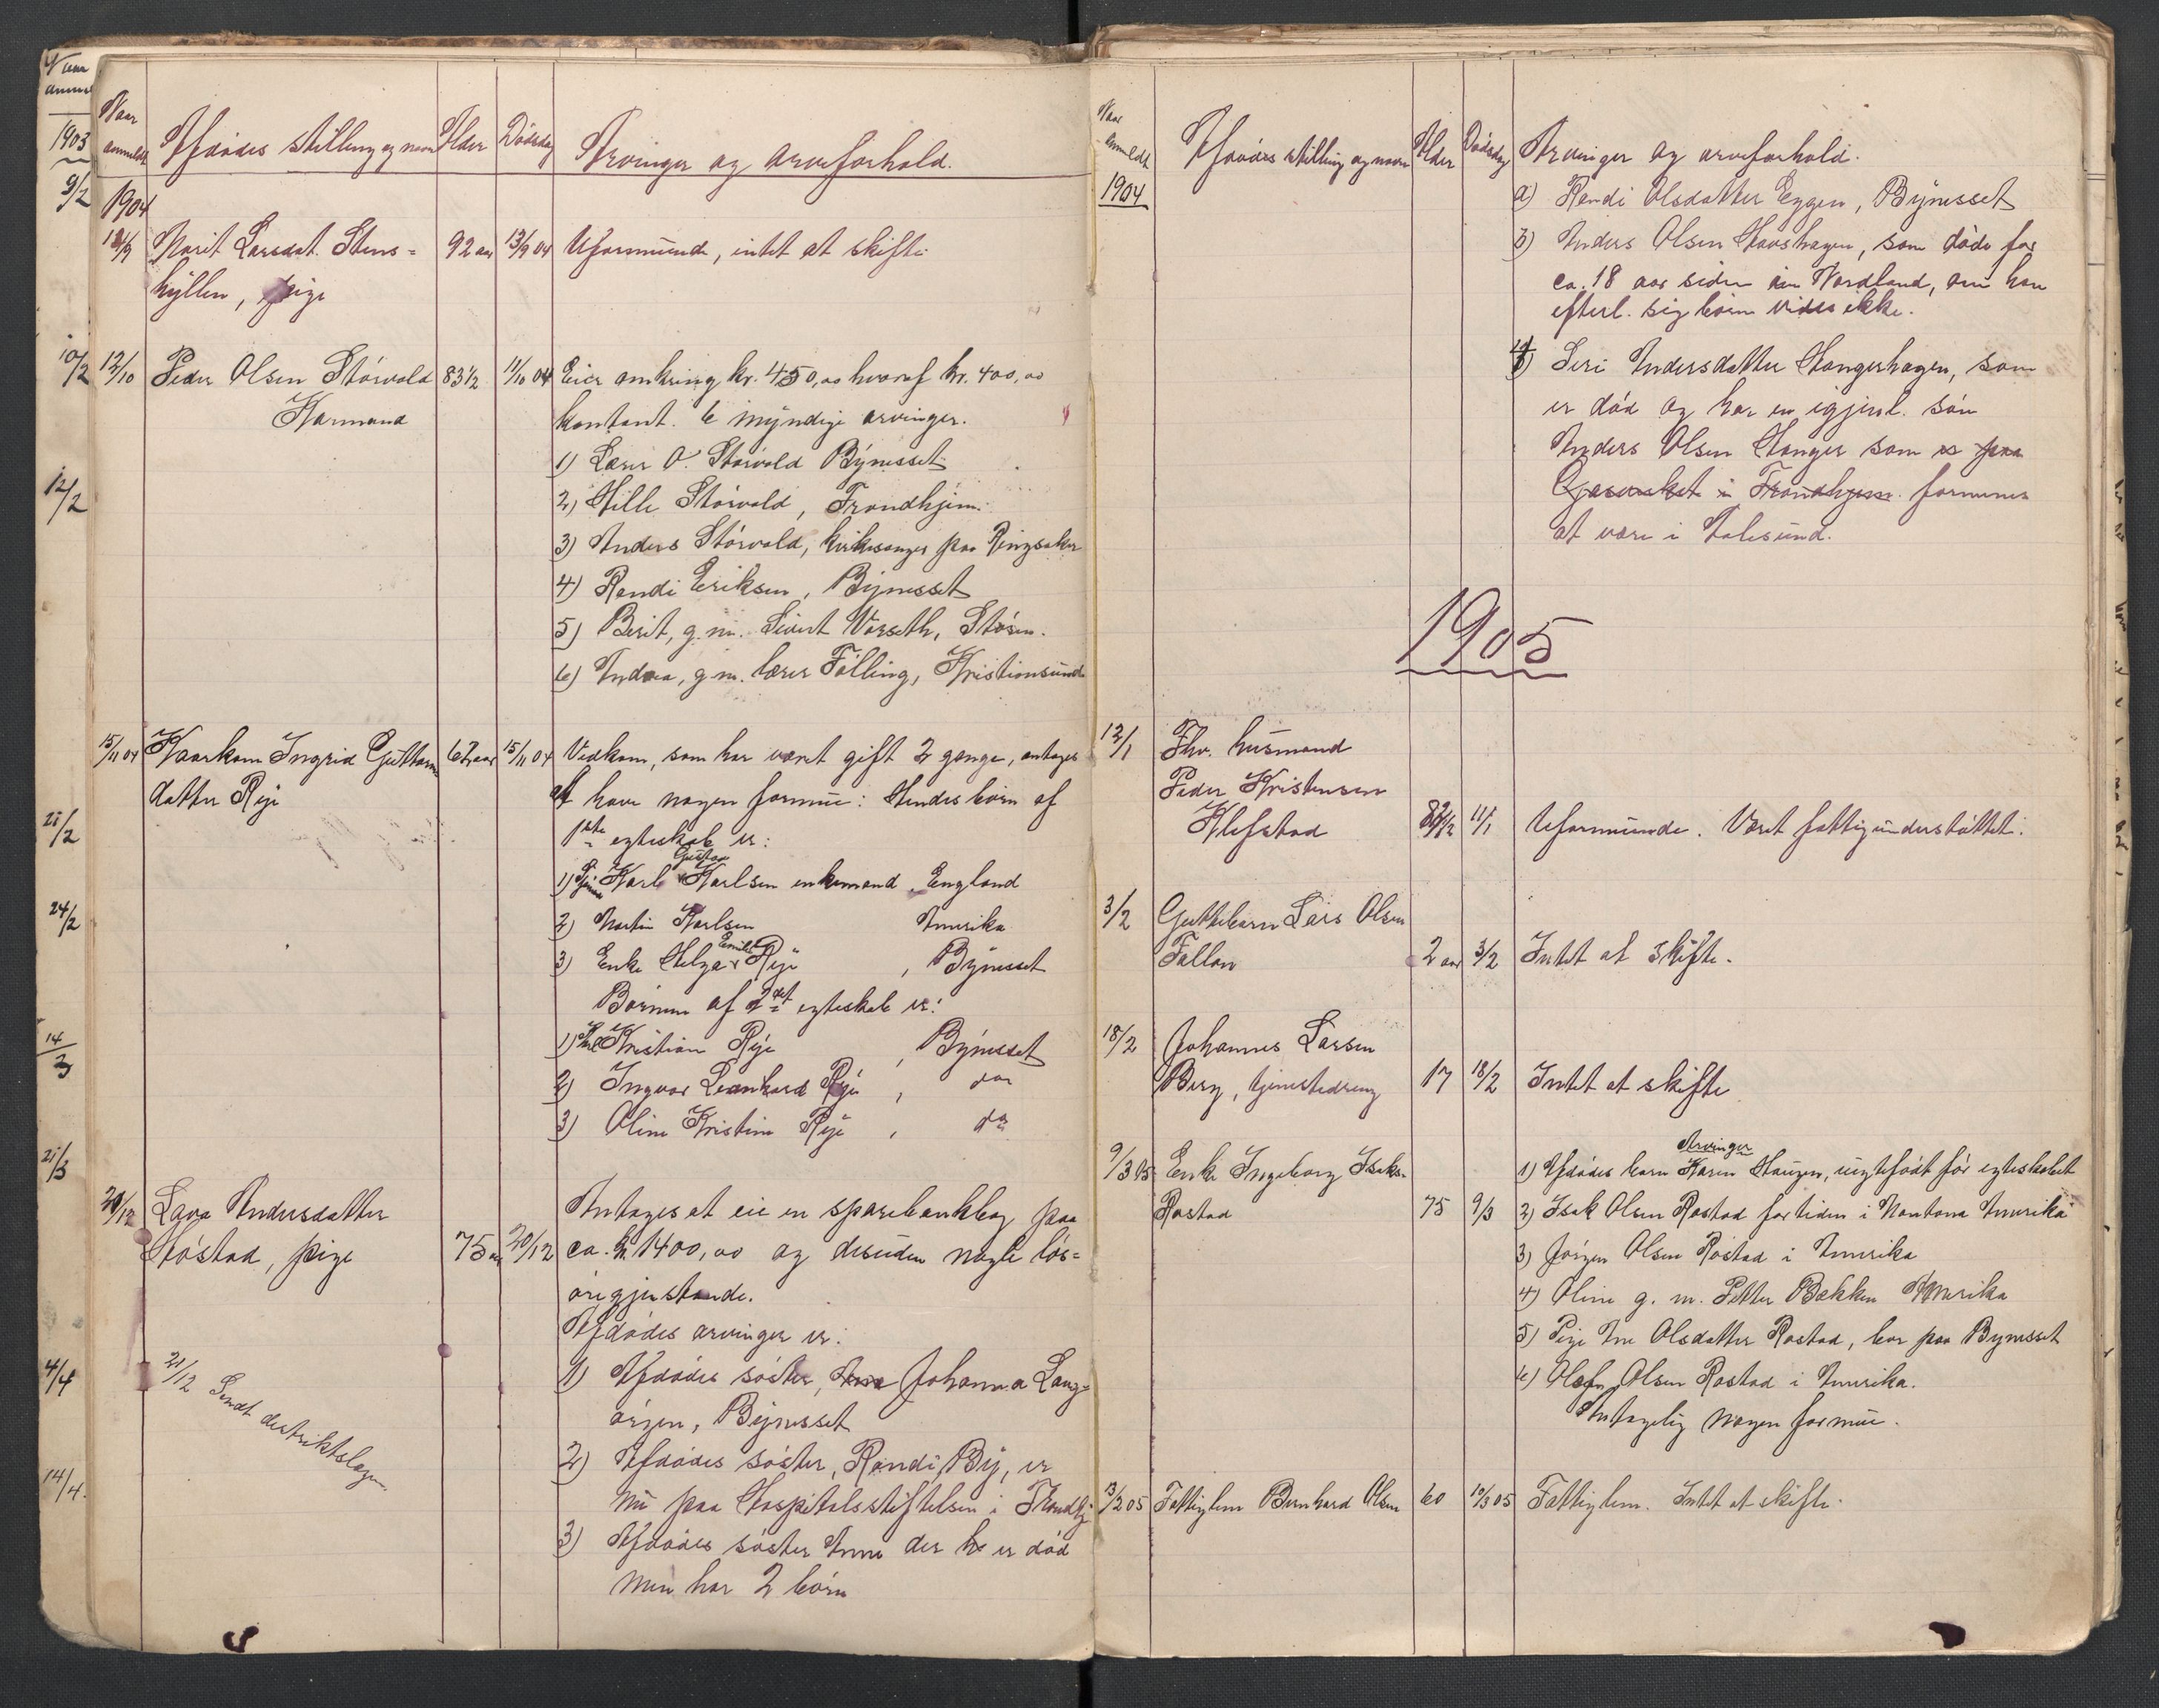 Naar
anmeldt
Afdødes stilling og navn
Alder
Dødsdag
Arvinger og arveforhold.
1904
Marit Larsdat. Stens=
hyllen, pige
92 aar
13/9 04
Uformuende, intet at skifte
12/10
Peder Olsen Størvold
Kaarmand
83 1/2
11/10 04
Eier omkring kr. 450,00 hvoraf kr. 400,00
kontant. 6 myndige arvinger.
1) Lærer O. Størvold Bynesset
2) Hille Størvold, Trondhjem.
3) Anders Størvold, kirkesanger paa Ringsaker
4) Randi Eriksen, Bynesset
5) Berit, g. m. Sivert Vorseth, Støren.
6) Andrea, g. m. lærer Følling, Kristiansund
15/11 04
Kaarkone Ingrid Guttorms
datter Rye
62 aar
15/11 04
Vedkom, som har været gift 2 gange, antages
at have nogen formue: Hendes børn af
1ste egteskab er:
Gustav
1) Karl Karlsen enkemand England
2) Martin Karlsen Amerika
Emilie
3) Enke Helga Rye, Bynesset
Børnene af 2det egteskab er:
1) Kristian Rye, Bynesset
2) Ingvar Leonhard Rye, do
3) Oline Kristine Rye, do
20/12
Lava Andersdatter
Høstad, pige
75 aar
20/12
Antages at eie en sparebankbog paa
ca. kr 1400,00 og desuden nogle løs=
øregjenstande.
Afdødes arvinger er:
1) Afdødes søster, Anne Johanna Lang=
ørgen, Bynesset
2) Afdødes søster, Randi By, er
nu paa Hospitalsstiftelsen i Trondhj
3) Afdødes søster Anne der er død
men har 2 børn
21/12 Sendt destriktslægen
1903
9/2
10/2
12/2
21/2
24/2
14/3
21/3
4/4
14/4.
Naar
anmeldt
Afdødes stilling og navn
Alder
Dødsdag
Arvinger og arveforhold.
1904
a) Randi Olsdatter Eggen, Bynesset
b) Anders Olsen Havshagen, som døde for
ca. 18 aar siden i Nordland, om han
efterl. sig børn vides ikke.
4) Siri Andersdatter Stangerhagen, som
er død og har en igjenl. søn
Anders Olsen Stanger som er paa
Gasverket i Trondhjem. formenes
at være i Aalesund.
1905
12/1
Fhv. husmand
Peder Kristensen
Klefstad
11/1
Uformuende. Været fattigunderstøttet.
3/2
Guttebarn Lars Olsen
Fallan
2 aar
3/2
Intet at skifte.
18/2
Johannes Larsen
Berg, tjenestedreng
17
18/2
Intet at skifte
9/3 05
Enke Ingeborg Isaks.
Rostad
75
9/3
Arvinger
1) Afdødes barn Karen Haugen, uegtefødt før egteskabet
2) Isak Olsen Rostad for tiden i Montana Amerika
3) Jørgen Olsen Rostad i Amerika
4) Oline g. m. Petter Bækken Amerika
5) Pige Ane Olsdatter Rostad, bor paa Bynesset
6) Olaf Olsen Rostad i Amerika.
Antagelig nogen formue.
Fattiglem Bernhard Olsen
60
Fattiglem. Intet at skifte.